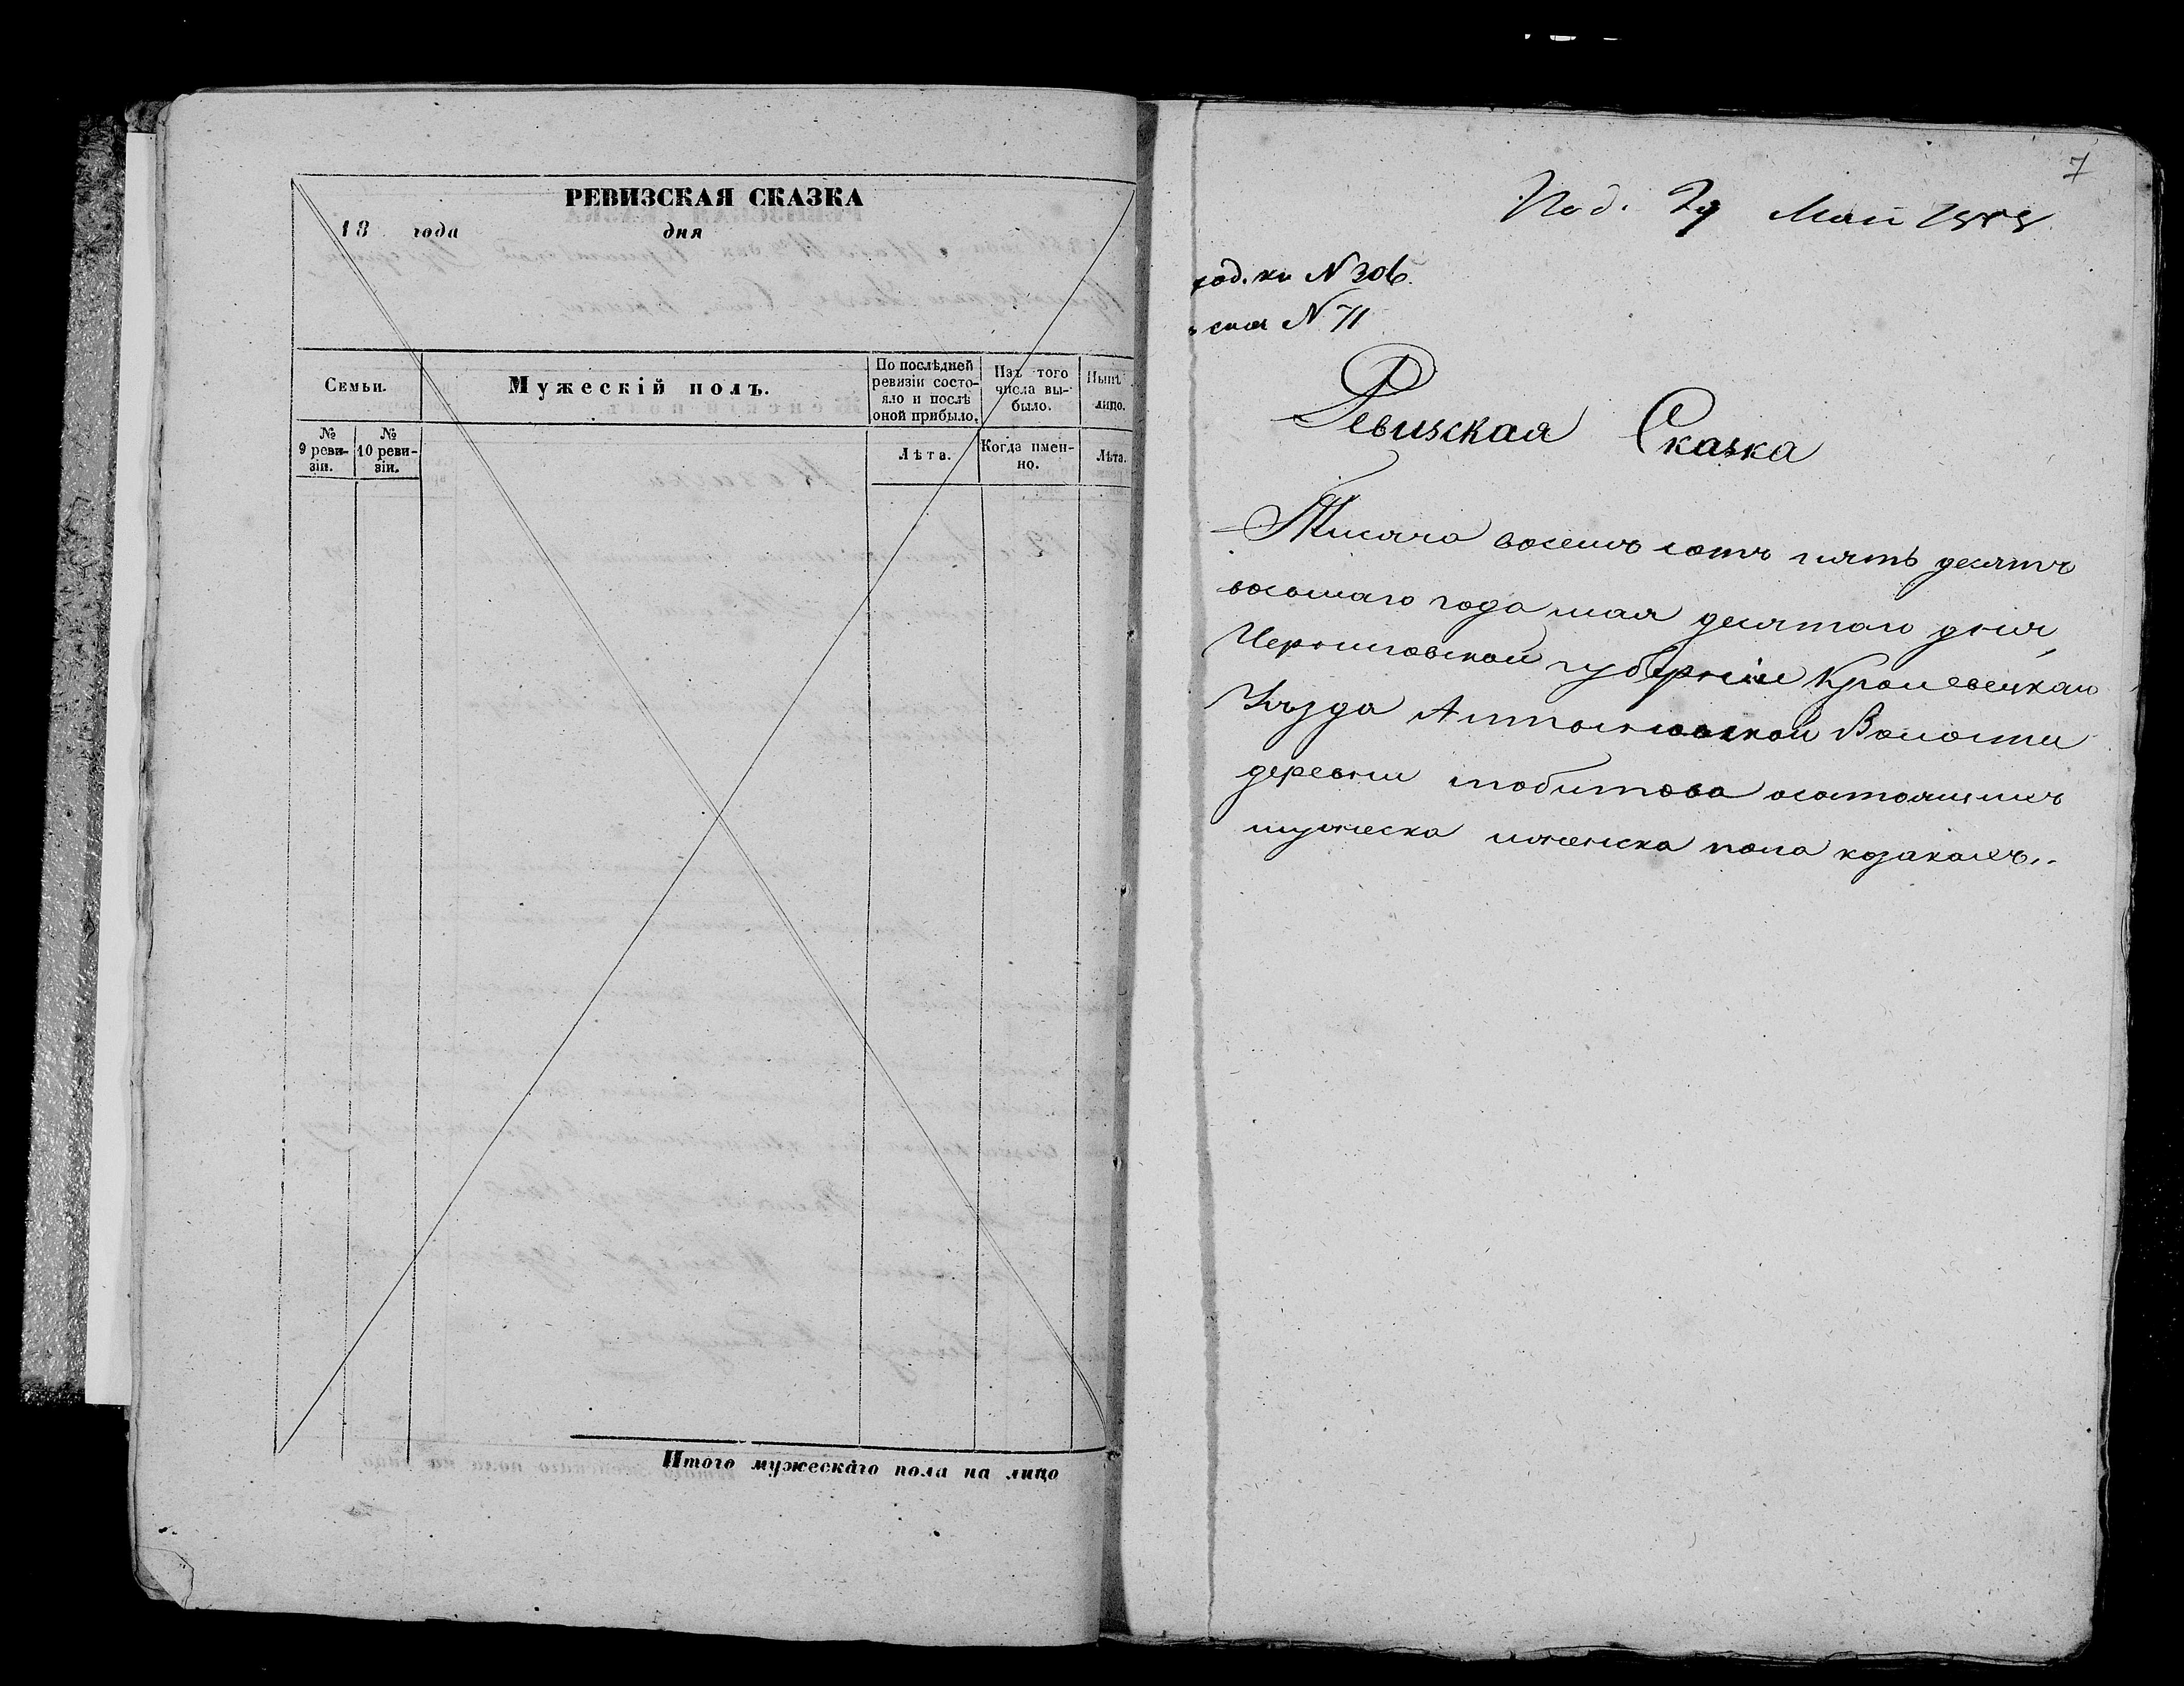 РЕВИЗСКАЯ СКАЗКА
18 года дня
Семьи.
Мужескій полъ.
По послѣдней ревизіи состо-яло и послѣ оной прибыло.
Изъ того числа вы-было.
Нынѣ лицо.
№ 9 реви-зіи.
№ 10 реви-зіи.
Лѣта.
Когда имен-но.
Лѣта.
Итого мужескаго пола на лицо
7
Под. 29 Мая 1858
род. кн N 306.
N 71
Ревизская Сказка
Тисяча восемъ сотъ пять десятъ
восьмаго года мая десятаго дня,
Черниговской губерніи Кролевецкаго
Уѣзда Алтыновской Волости
деревни осостоящихъ
мужеска иженска пола козакахъ..